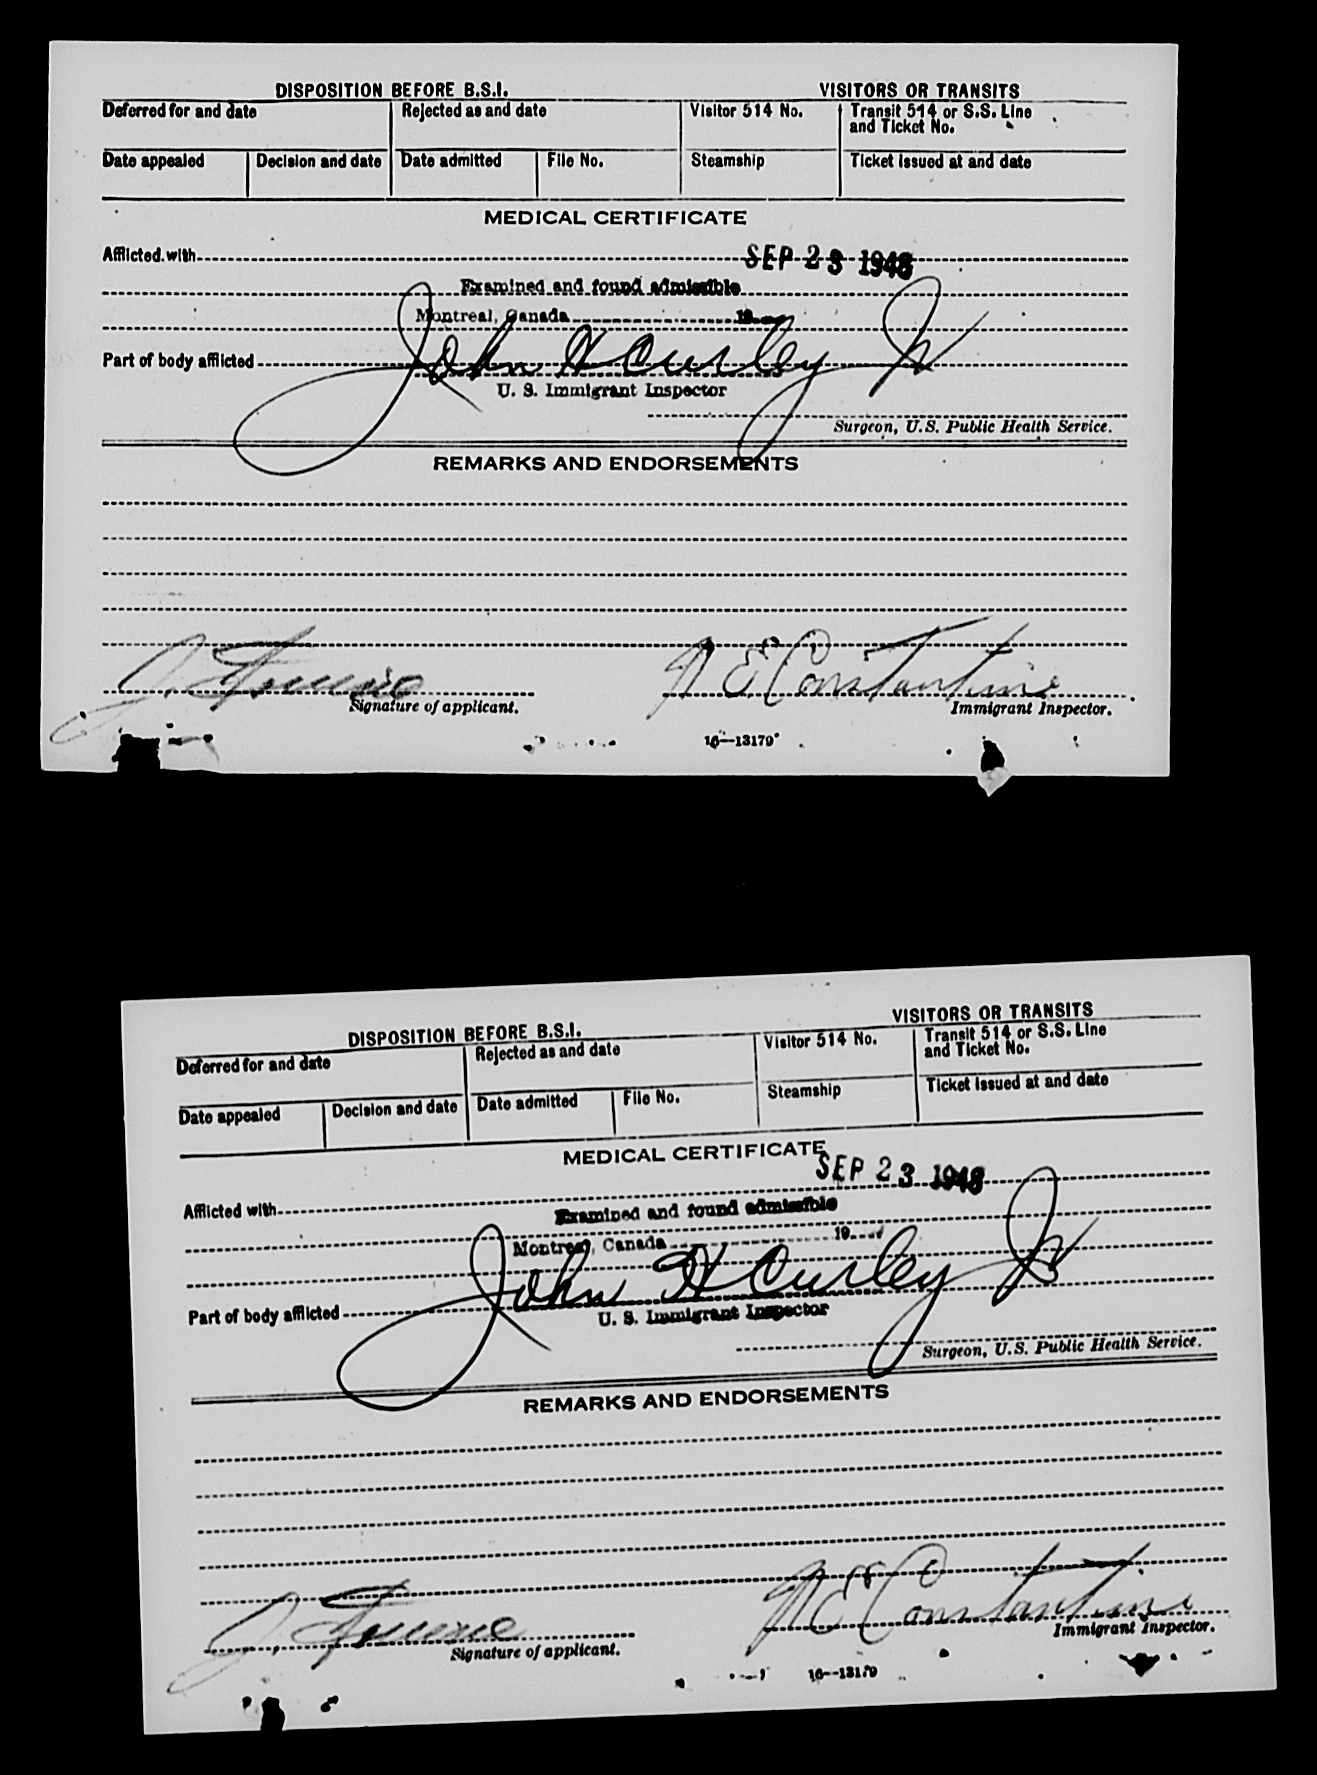 DISPOSITION BEFORE B.S.I. VISITORS OR TRANSITS
Deferred for and date Rejected as and date Visitor 514 No. Transit 514 or S.S. Line
and Ticket No.
Date appealed Decision and date Date admitted File No. Steamship Ticket issued at and date
MEDICAL CERTIFICATE
Afflicted with SEP 23 1948
Examined and found admissible
Montreal, Canada 19
Part of body afflicted John H Curley Jr
U. S. Immigrant Inspector
Surgeon, U.S. Public Health Service.
REMARKS AND ENDORSEMENTS
J. N E Constantine
Signature of applicant. Immigrant Inspector.
16—13179
DISPOSITION BEFORE B.S.I. VISITORS OR TRANSITS
Deferred for and date Rejected as and date Visitor 514 No. Transit 514 or S.S. Line
and Ticket No.
Date appealed Decision and date Date admitted File No. Steamship Ticket issued at and date
MEDICAL CERTIFICATE
SEP 23 1948
Afflicted with Examined and found admissible
Montreal, Canada 19
John H Curley Jr
Part of body afflicted U. S. Immigrant Inspector
Surgeon, U.S. Public Health Service.
REMARKS AND ENDORSEMENTS
J. N E Constantine
Signature of applicant. Immigrant Inspector.
16—13179